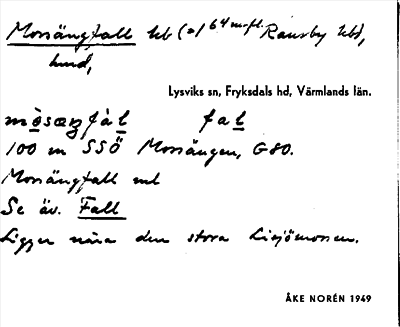 Mossängfall hb (=) 64 m. fl. Ransby hbd,
hmd,
Lysviks sn, Fryksdals hd, Värmlands län.
mòsæŋfàl fal
100 m SSÖ Mossängen, G80.
Mossängfall ml
Se äv. Fall
Ligger nära den stora Lisjömossen.
ÅKE NORÉN 1949